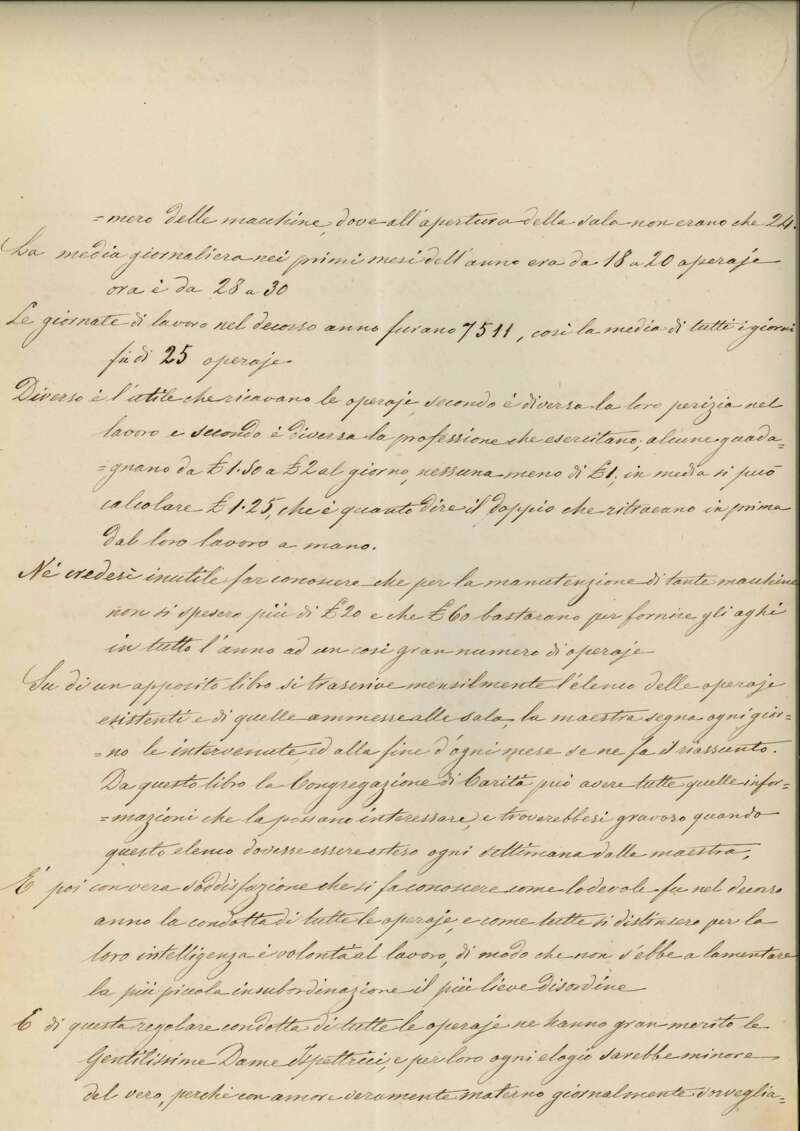 =mero delle macchine, dove all'apertura della sala non erano che 24.
La media giornaliera nei primi mesi dell'anno era da 18 a 20 operaje
ora è da 28 a 30
Le giornate di lavoro nel decorso anno furano 7511, così la media di tutti i giorni
fù di 25 operaje
Diverso è l'utile che ricavano le operaje, secondo è diversa la loro perizia nel
lavoro e secondo è diversa la professione che esercitano; alcune guada=
=gnano da £1.50 a £2 al giorno, nessuna meno di £1, in media si può
calcolare £1.25, che è quanto dire il doppio che ritraeano in prima
dal loro lavoro a mano.
Nè credesi inutile far conoscere che per la manutenzione di tante macchine
non si spesero più di £20 e che £60 bastarano per fornire gli aghi
in tutto l'anno ad un così gran numero di operaje
Su di un apposito libro si trascrive mensilmente l'elenco delle operaje
esistenti e di quelle ammesse alle sala, la maestra segna ogni gior=
=no le intervenute, ed alla fine d'ogni mese se ne fa il riassunto.
Da questo libro la Congregazione di Carità può avere tutte quelle infor=
=mazioni che la possano interessare, e troverebbesi gravoso quando
questo elenco dovesse essere esteso ogni settimana dalle maestra,
E' poi con vera soddisfazione che si fa conoscere come lodevole fu nel decorso
anno la condotta di tutte le operaje, e come tutte si distinsero per la
loro intelligenza è volontà al lavoro, di modo che non s'ebbe a lamentare
la più piccola insubordinazione il più lieve disordine
E di questa regolare condotta di tutte le operaje ne hanno gran merito le
Gentilissime Dame Ispettrici, e per loro ogni elogio sarebbe minore
del vero, perchè con amore veramente materno giornalmente sorveglia=